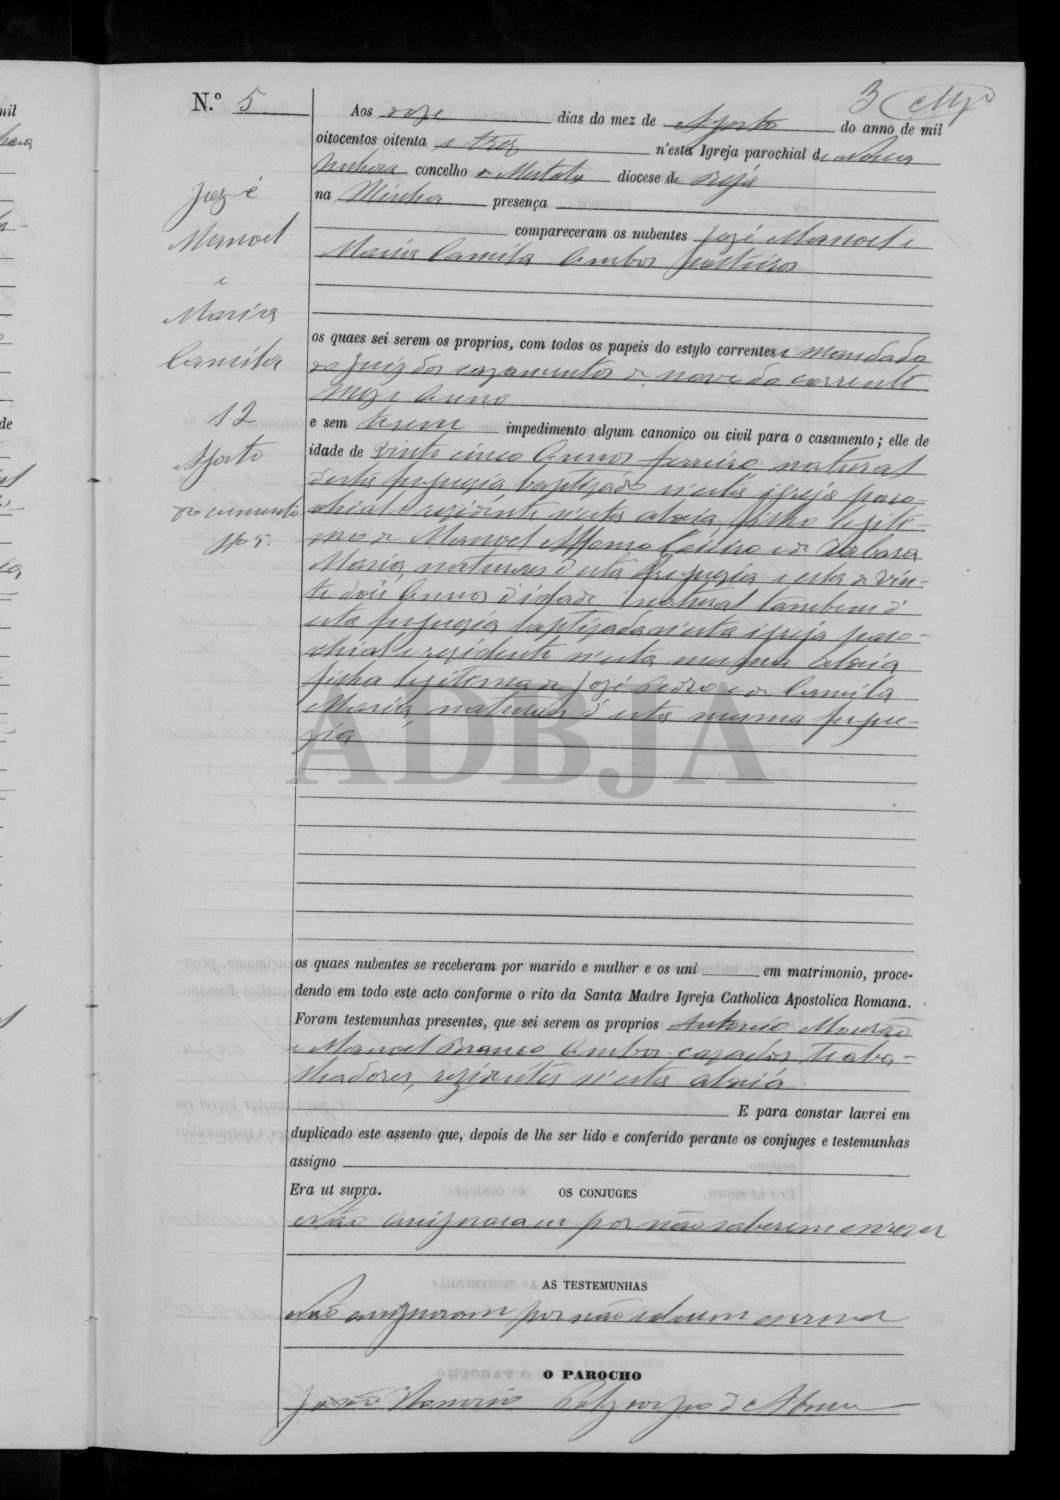 N.º 5
3
Aos doze dias do mez de Agosto do anno de mil
oitocentos oitenta e trez n'esta Igreja parochial de Nossa
Senhora concelho de diocese de Beja
na Minha presença
compareceram os nubentes José Manoel e
Maria Camila Ambos solteiros
os quaes sei serem os proprios, com todos os papeis do estylo correntes e mandado
do Juiz dos cazamentos de nove do corrente
mez e Anno
e sem terem impedimento algum canonico ou civil para o casamento; elle de
idade de Vinte cinco Annos ferreiro natural
desta freguezia baptizado n'esta igreja paro-
chial e rezidente n'esta aldeia filho legiti-
mo de Manoel Affonso e de Barbara
Maria, naturaes d'esta Freguezia e esta de vin-
te dois Annos d'idade natural tambem d'
esta freguezia baptizada n'esta igreja paro-
chial e rezidente n'esta mesma aldeia
filha legitima de José Pedro e de Camila
Maria, naturaes d'esta mesma fregue-
zia
José
Manoel
e
Maria
Camila
12
Agosto
documento
Nº 5.
ADBJA
os quaes nubentes se receberam por marido e mulher e os uni em matrimonio, proce-
dendo em todo este acto conforme o rito da Santa Madre Igreja Catholica Apostolica Romana.
Foram testemunhas presentes, que sei serem os proprios Antonio Mourão
e Manoel Branco Ambos cazados, traba-
lhadores, rezidentes n'esta aldeia
E para constar lavrei em
duplicado este assento que, depois de lhe ser lido e conferido perante os conjuges e testemunhas
assigno
Era ut supra.
OS CONJUGES
Não assignaram por não saberem escrever
AS TESTEMUNHAS
Não assignaram por não saberem escrever
O PAROCHO
d'Abreu